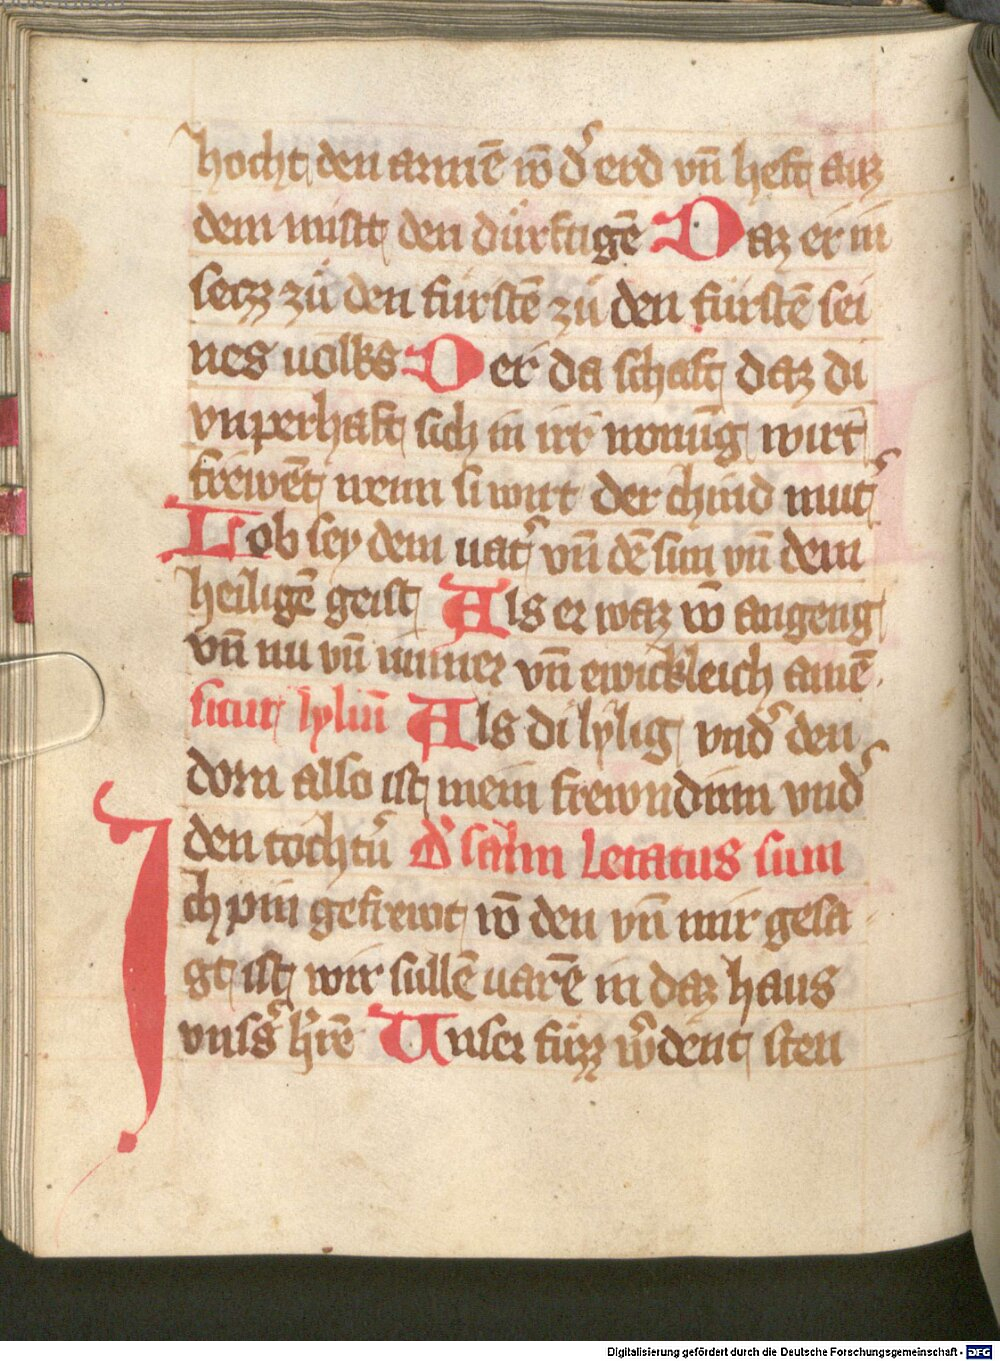 hocht den armē vō d̕ erd vn̄ hebt auz
dem mistt den dürftigē Daz er in
secz zü den fürstē zü den fürstē sei
nes uolks Der da schaft daz di
vnperhaft sich in irr wonūg wirt
frewēt wenn si wirt der chind mut̕
Lob sey dem uat̕ vn̄ dē sun vn̄ dem
heiligē geist Als er waz vō angeng
vn̄ nu vn̄ immer vn̄ ewickleich amē.
sicut lyliū Als di lylig vnd̕ den
dorn also ist mein frewndinn vnd̕
den tocht̕n d̕ salm Letatus sum
Ich pin gefrewt vō den vn̄ mir gesa
gt ist wir sullē uarē in daz haus
vnsʹs h̕rē Unser füzz w̕dent sten
Digitalisierung gefördert durch die Deutsche Forschungsgemeinschaft - DFG